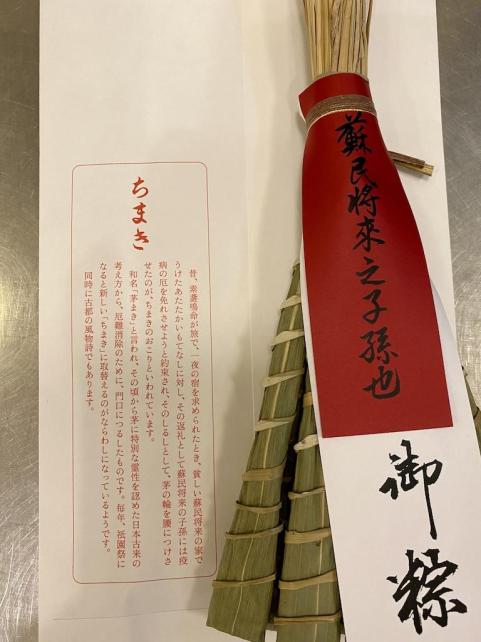 蘇民将來之子孫也
御粽
ちまき
昔、素盞鳴命が旅で、一夜の宿を求められたとき、貧しい蘇民将来の家で
うけたあたたかいもてなしに対し、その返礼として蘇民将来の子孫には疫
病の厄を免れさせようと約束され、そのしるしとして、茅の輪を腰につけさ
せたのが、ちまきのおこりといわれています。
和名「茅まき」と言われ、その頃から茅に特別な霊性を認めた日本古来の
考え方から、厄難消除のために、門口につるしたものです。毎年、祇園祭に
なると新しい「ちまき」に取替えるのがならわしになっているようです。
同時に古都の風物詩でもあります。